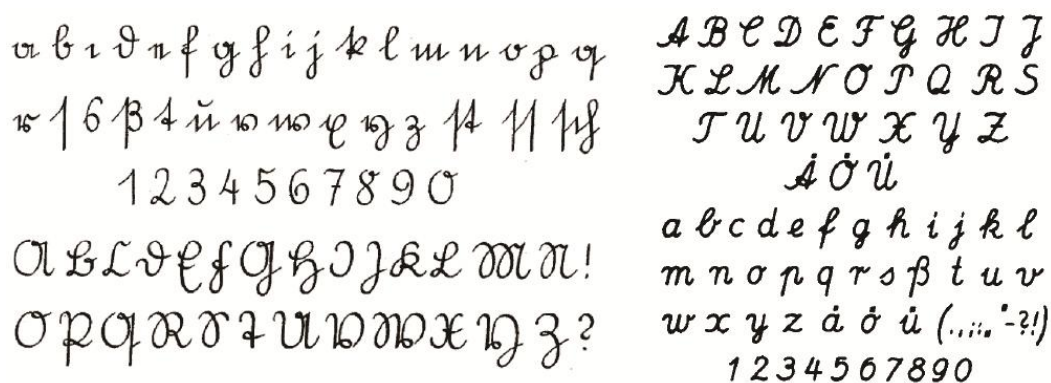 a b c d e f g h i j k l m n o p q
r ſ s ß t ŭ v w x y z ſt ſſ ſch
1 2 3 4 5 6 7 8 9 0
A B C D E F G H I J K L M N !
O P Q R S T U V W X Y Z ?
A B C D E F G H I J
K L M N O P Q R S
T U V W X Y Z
Ä Ö Ü
a b c d e f g h i j k l
m n o p q r s ß t u v
w x y z ä ö ü (.,:;„"-?!)
1 2 3 4 5 6 7 8 9 0